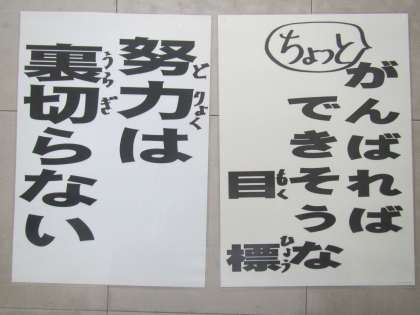 ちょっと
がんばれば
できそうな
目標
もく
ひょう
努力は
どりょく
裏切らない
うらぎ